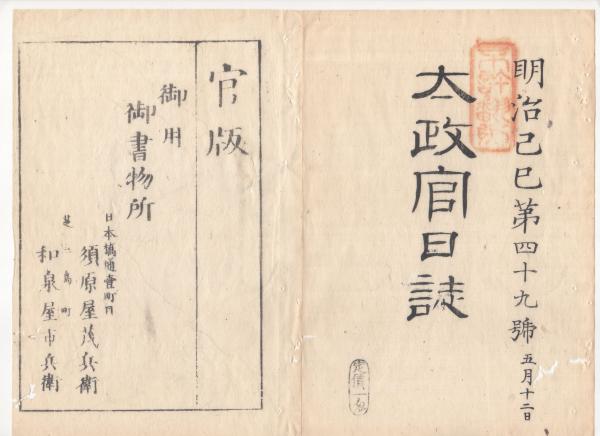 明治己巳第四十九號 五月十二日
太政官日誌
官版
御用
御書物所
日本橋通壹町目
須原屋茂兵衛
芝三島町
和泉屋市兵衛